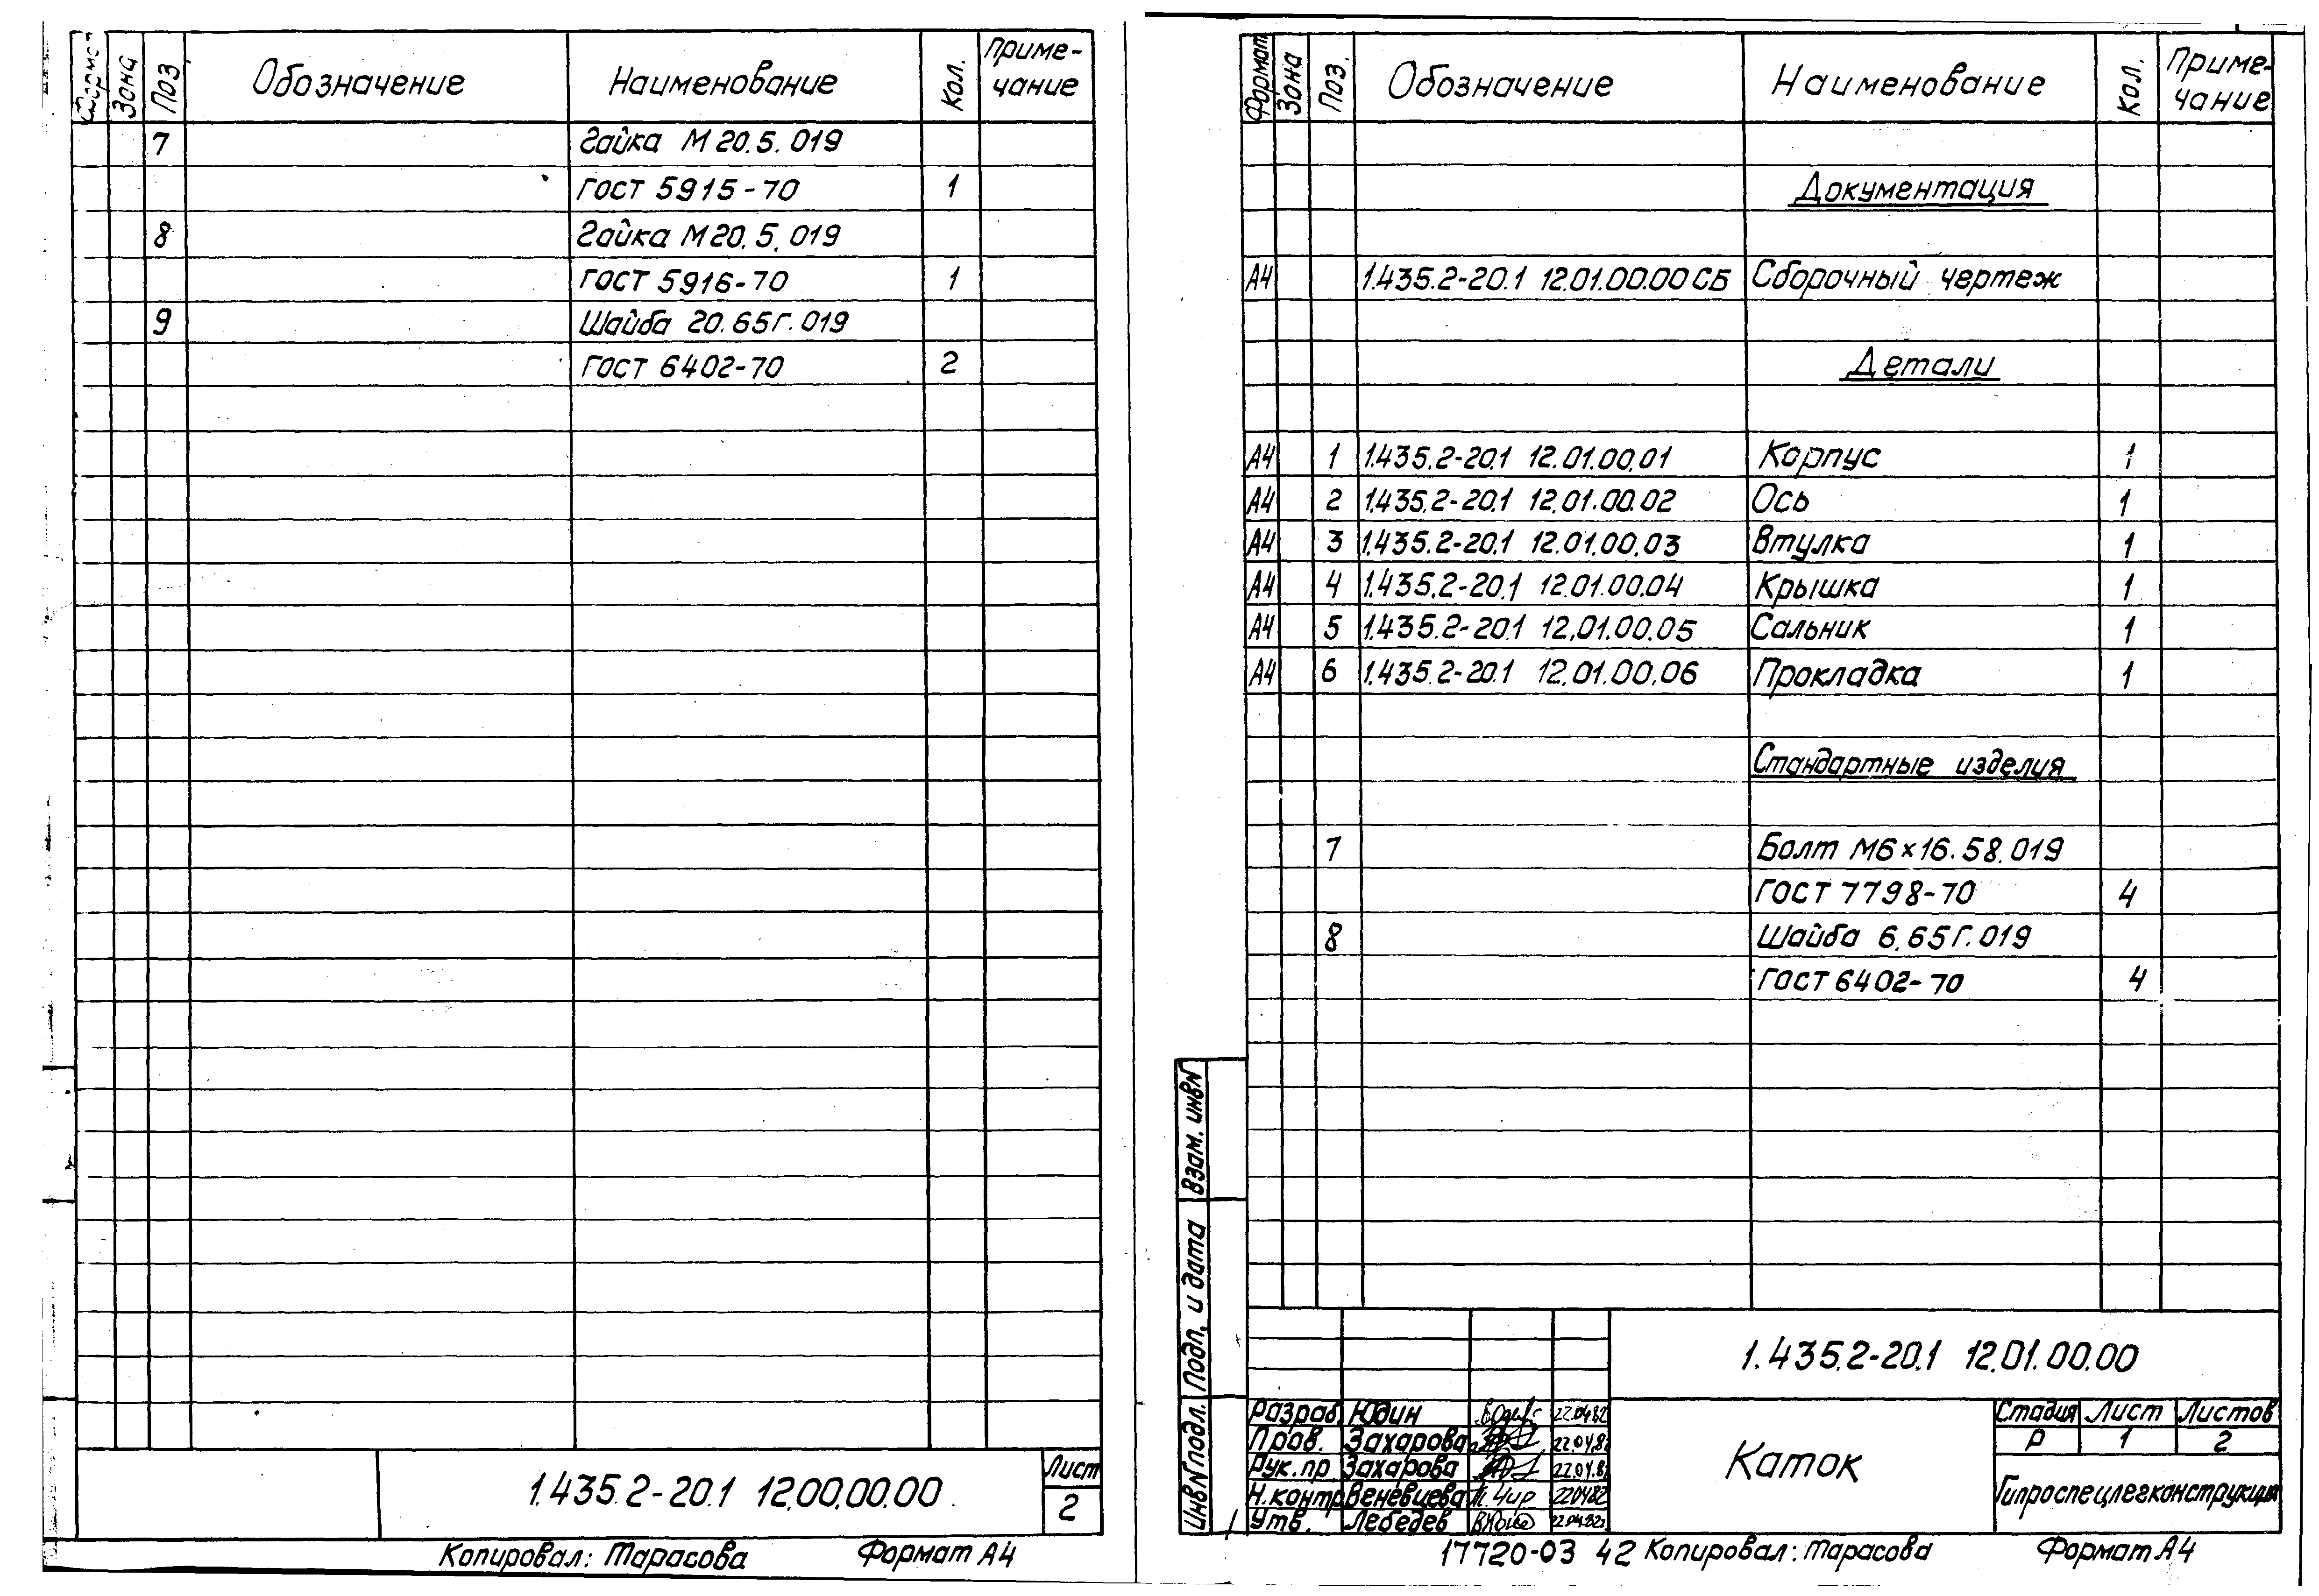 Формат Зона Поз. Обозначение Наименование Кол. Приме-
чание
7 Гайка М 20.5.019
ГОСТ 5915-70 1
8 Гайка М20.5.019
ГОСТ 5916-70 1
9 Шайба 20.65Г.019
ГОСТ 6402-70 2
1.435.2-20.1 12.00.00.00
Лист
2
Копировал: Тарасова Формат А4
Формат Зона Поз. Обозначение Наименование Кол. Приме-
чание
Документация
А4 1.435.2-20.1 12.01.00.00 СБ Сборочный чертеж
Детали
А4 1 1.435.2-20.1 12.01.00.01 Корпус 1
А4 2 1.435.2-20.1 12.01.00.02 Ось 1
А4 3 1.435.2-20.1 12.01.00.03 Втулка 1
А4 4 1.435.2-20.1 12.01.00.04 Крышка 1
А4 5 1.435.2-20.1 12.01.00.05 Сальник 1
А4 6 1.435.2-20.1 12.01.00.06 Прокладка 1
Стандартные изделия
7 Болт М6×16.58.019
ГОСТ 7798-70 4
8 Шайба 6.65Г.019
ГОСТ 6402-70 4
Взам. инв.N
Подп. и дата
Инв.N подл.
1.435.2-20.1 12.01.00.00
Разраб. Юдин 22.04.82
Пров. Захарова 22.04.82
Рук.пр. Захарова 22.04.82
Н.контр. Веневцева 22.04.82
Утв. Лебедев 22.04.82
Каток
Стадия Лист Листов
Р 1 2
Гипроспецлегконструкция
17720-03 42 Копировал: Тарасова Формат А4